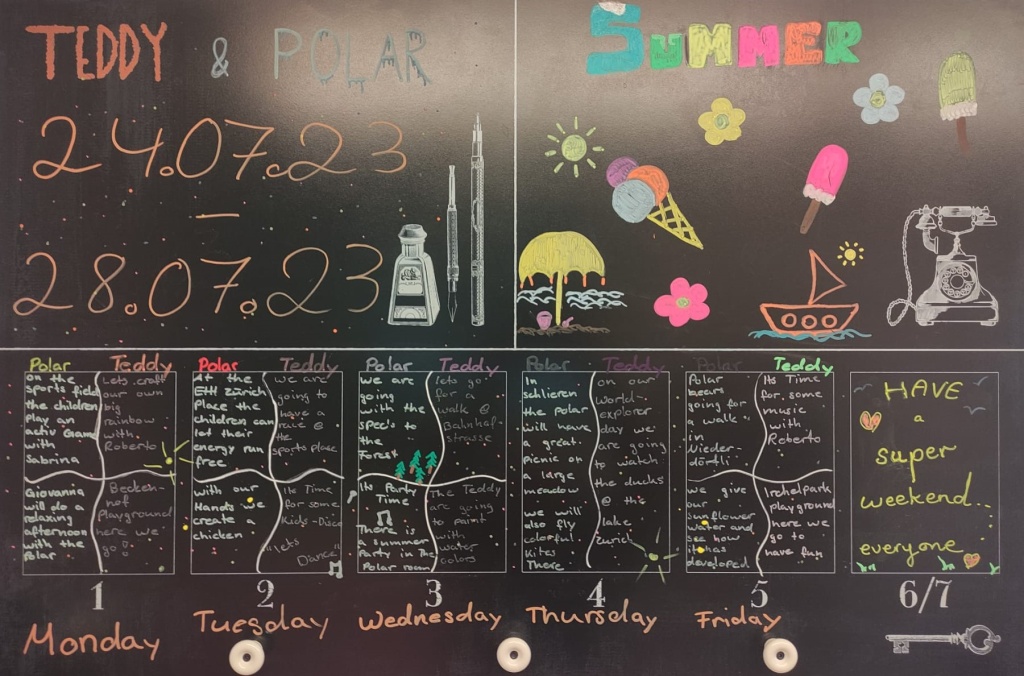 TEDDY & POLAR
24.07.23
—
28.07.23
SUMMER
Polar
on the
sports field
the children
Play an
activ Game
with
Sabrina
Teddy
Lets craft
our own
big
rainbow
with
Roberto
Giovanna
will do a
relaxing
afternoon
with the
Polar
Becken-
hof
Playground
here we
go!
1
Monday
Polar
At the
ETH Zürich
Place the
children can
let their
energy run
free
Teddy
we are
going to
have a
race @
the
sports place
with our
Hands we
create a
chicken
Its Time
for some
Kids-Disco
"lets
Dance"
2
Tuesday
Polar
we are
going
with the
Spec's to
the
Forest
Teddy
lets go
for a
walk @
Bahnhof-
strasse
Its Party
Time
There is
a summer
Party in The
Polar room
The Teddy
are going
to paint
with
water
colors
3
Wednesday
Polar
In
schlieren
the polar
will have
a great
picnic on
a large
meadow
we will
also fly
colorful
Kites
There
Teddy
on our
world-
explorer
day we
are going
to watch
the ducks
@ the
lake
Zürich
4
Thursday
Polar
Polar
bears
going for
a walk
in
Nieder-
dörfli
Teddy
Its Time
for some
music
with
Roberto
we give
our
sunflower
water and
see how
it has
developed
Irchelpark
playground
here we
go to
have fun
5
Friday
HAVE
a
super
weekend...
everyone
6/7